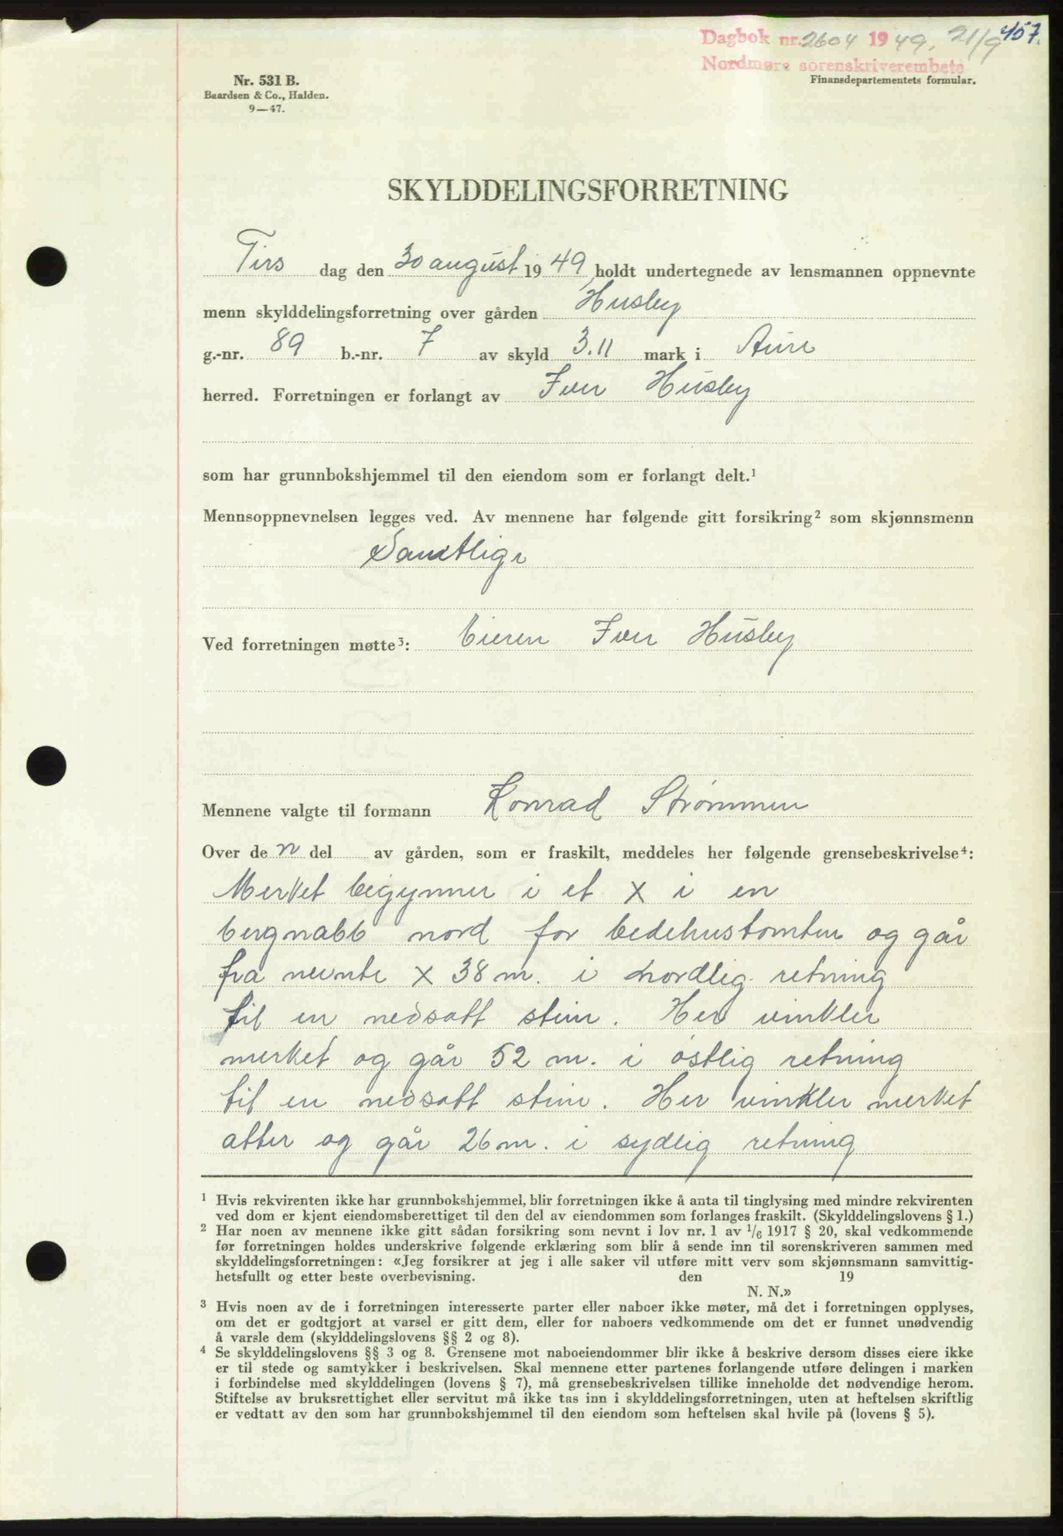 457.
Dagbok nr. 2604 1949, 21/9
Nordmøre sorenskriverembete
Nr. 531 B.
Baardsen & Co., Halden.
9—47.
Finansdepartementets formular.
SKYLDDELINGSFORRETNING
Tirs dag den 30 august 1949, holdt undertegnede av lensmannen oppnevnte
menn skylddelingsforretning over gården Husby
g.-nr. 89 b.-nr. 7 av skyld 3.11 mark i Aure
herred. Forretningen er forlangt av Iver Husby
som har grunnbokshjemmel til den eiendom som er forlangt delt.¹
Mennsoppnevnelsen legges ved. Av mennene har følgende gitt forsikring² som skjønnsmenn
Samtlige
Ved forretningen møtte³: Eieren Iver Husby
Mennene valgte til formann Konrad Strømmen
Over de n del av gården, som er fraskilt, meddeles her følgende grensebeskrivelse⁴:
Merket begynner i et X i en
bergnabb nord for bedehustomten og går
fra nevnte X 38 m. i nordlig retning
til en nedsatt stein. Her vinkler
merket og går 52 m. i østlig retning
til en nedsatt stein. Her vinkler merket
atter og går 26 m. i sydlig retning
¹ Hvis rekvirenten ikke har grunnbokshjemmel, blir forretningen ikke å anta til tinglysing med mindre rekvirenten
ved dom er kjent eiendomsberettiget til den del av eiendommen som forlanges fraskilt. (Skylddelingslovens § 1.)
² Har noen av mennene ikke gitt sådan forsikring som nevnt i lov nr. 1 av 1/6 1917 § 20, skal vedkommende
før forretningen holdes underskrive følgende erklæring som blir å sende inn til sorenskriveren sammen med
skylddelingsforretningen: «Jeg forsikrer at jeg i alle saker vil utføre mitt verv som skjønnsmann samvittig-
hetsfullt og etter beste overbevisning. den 19
N. N.»
³ Hvis noen av de i forretningen interesserte parter eller naboer ikke møter, må det i forretningen opplyses,
om det er godtgjort at varsel er gitt dem, eller for naboers vedkommende om det er funnet unødvendig
å varsle dem (skylddelingslovens §§ 2 og 8).
⁴ Se skylddelingslovens §§ 3 og 8. Grensene mot naboeiendommer blir ikke å beskrive dersom disses eiere ikke
er til stede og samtykker i beskrivelsen. Skal mennene etter partenes forlangende utføre delingen i marken
i forbindelse med skylddelingen (lovens § 7), må grensebeskrivelsen tillike inneholde det nødvendige herom.
Stiftelse av bruksrettighet eller servitut må ikke tas inn i skylddelingsforretningen, uten at heftelsen skriftlig
er vedtatt av den som har grunnbokshjemmel til den eiendom som heftelsen skal hvile på (lovens § 5).